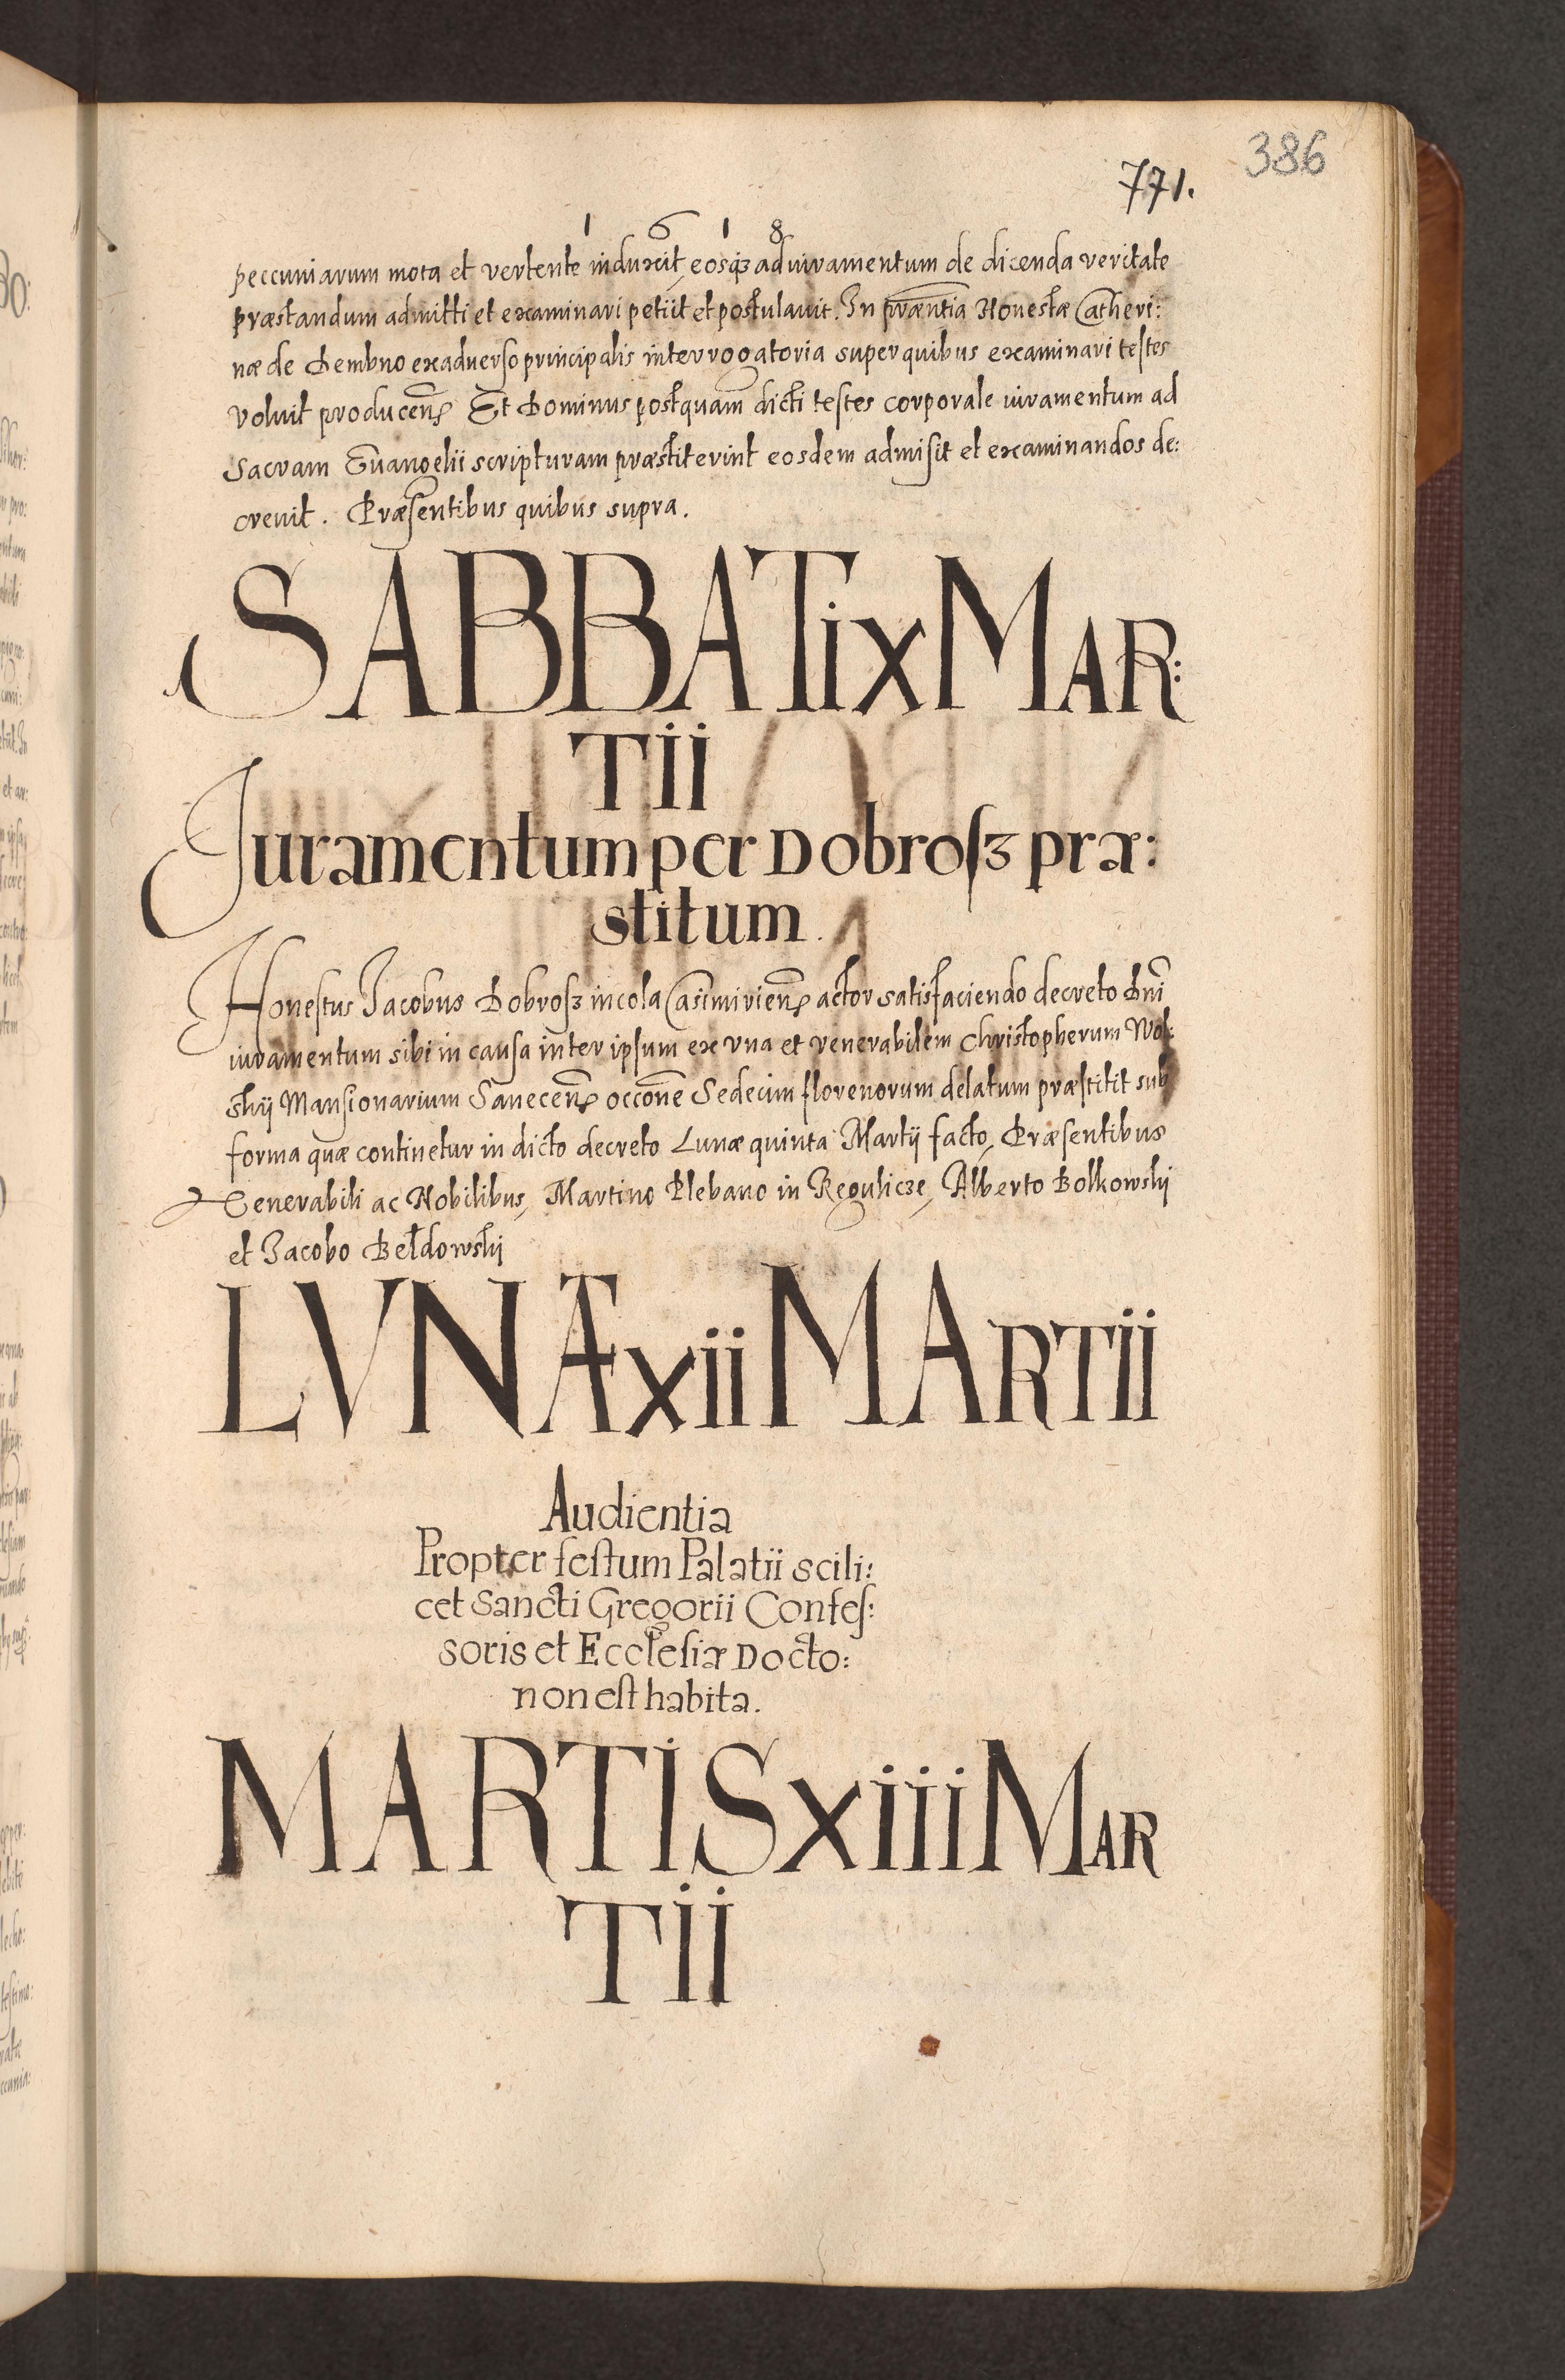 386
771.
1 6 1 8
peccuniarum mota et vertente induxit, eosq3 ad iuramentum de dicenda veritate
præstandum admitti et examinari petiit et postulavit. In præntia Honestæ Catheri:
næ de Dembno ex adverso principalis interrogatoria super quibus examinari testes
voluit producens Et Dominus postquam dicti testes corporale iuramentum ad
Sacram Euangelii scripturam præstiterint eosdem admisit et examinandos de:
crevit. Præsentibus quibus supra.
SABBATi x MAR:
Tii
Juramentum per Dobrosz præ:
stitum.
Honestus Jacobus Dobrosz incola Casimiriens actor satisfaciendo decreto Dni
iuramentum sibi in causa inter ipsum ex vna et venerabilem Christopherum Wol:
skij Mansionarium Sanecens occone Sedecim florenorum delatum præstitit sub
forma quæ continetur in dicto decreto Lunæ quinta Martij facto, Præsentibus
Venerabili ac Nobilibus, Martino Plebano in Regulicze, Alberto Bolkowskij
et Jacobo Bełdowskij
LVNÆ xii MARTii
Audientia
Propter festum Palatii scili:
cet Sancti Gregorii Confes:
soris et Ecclesiæ Docto:
non est habita.
MARTIS xiii MAR
Tii